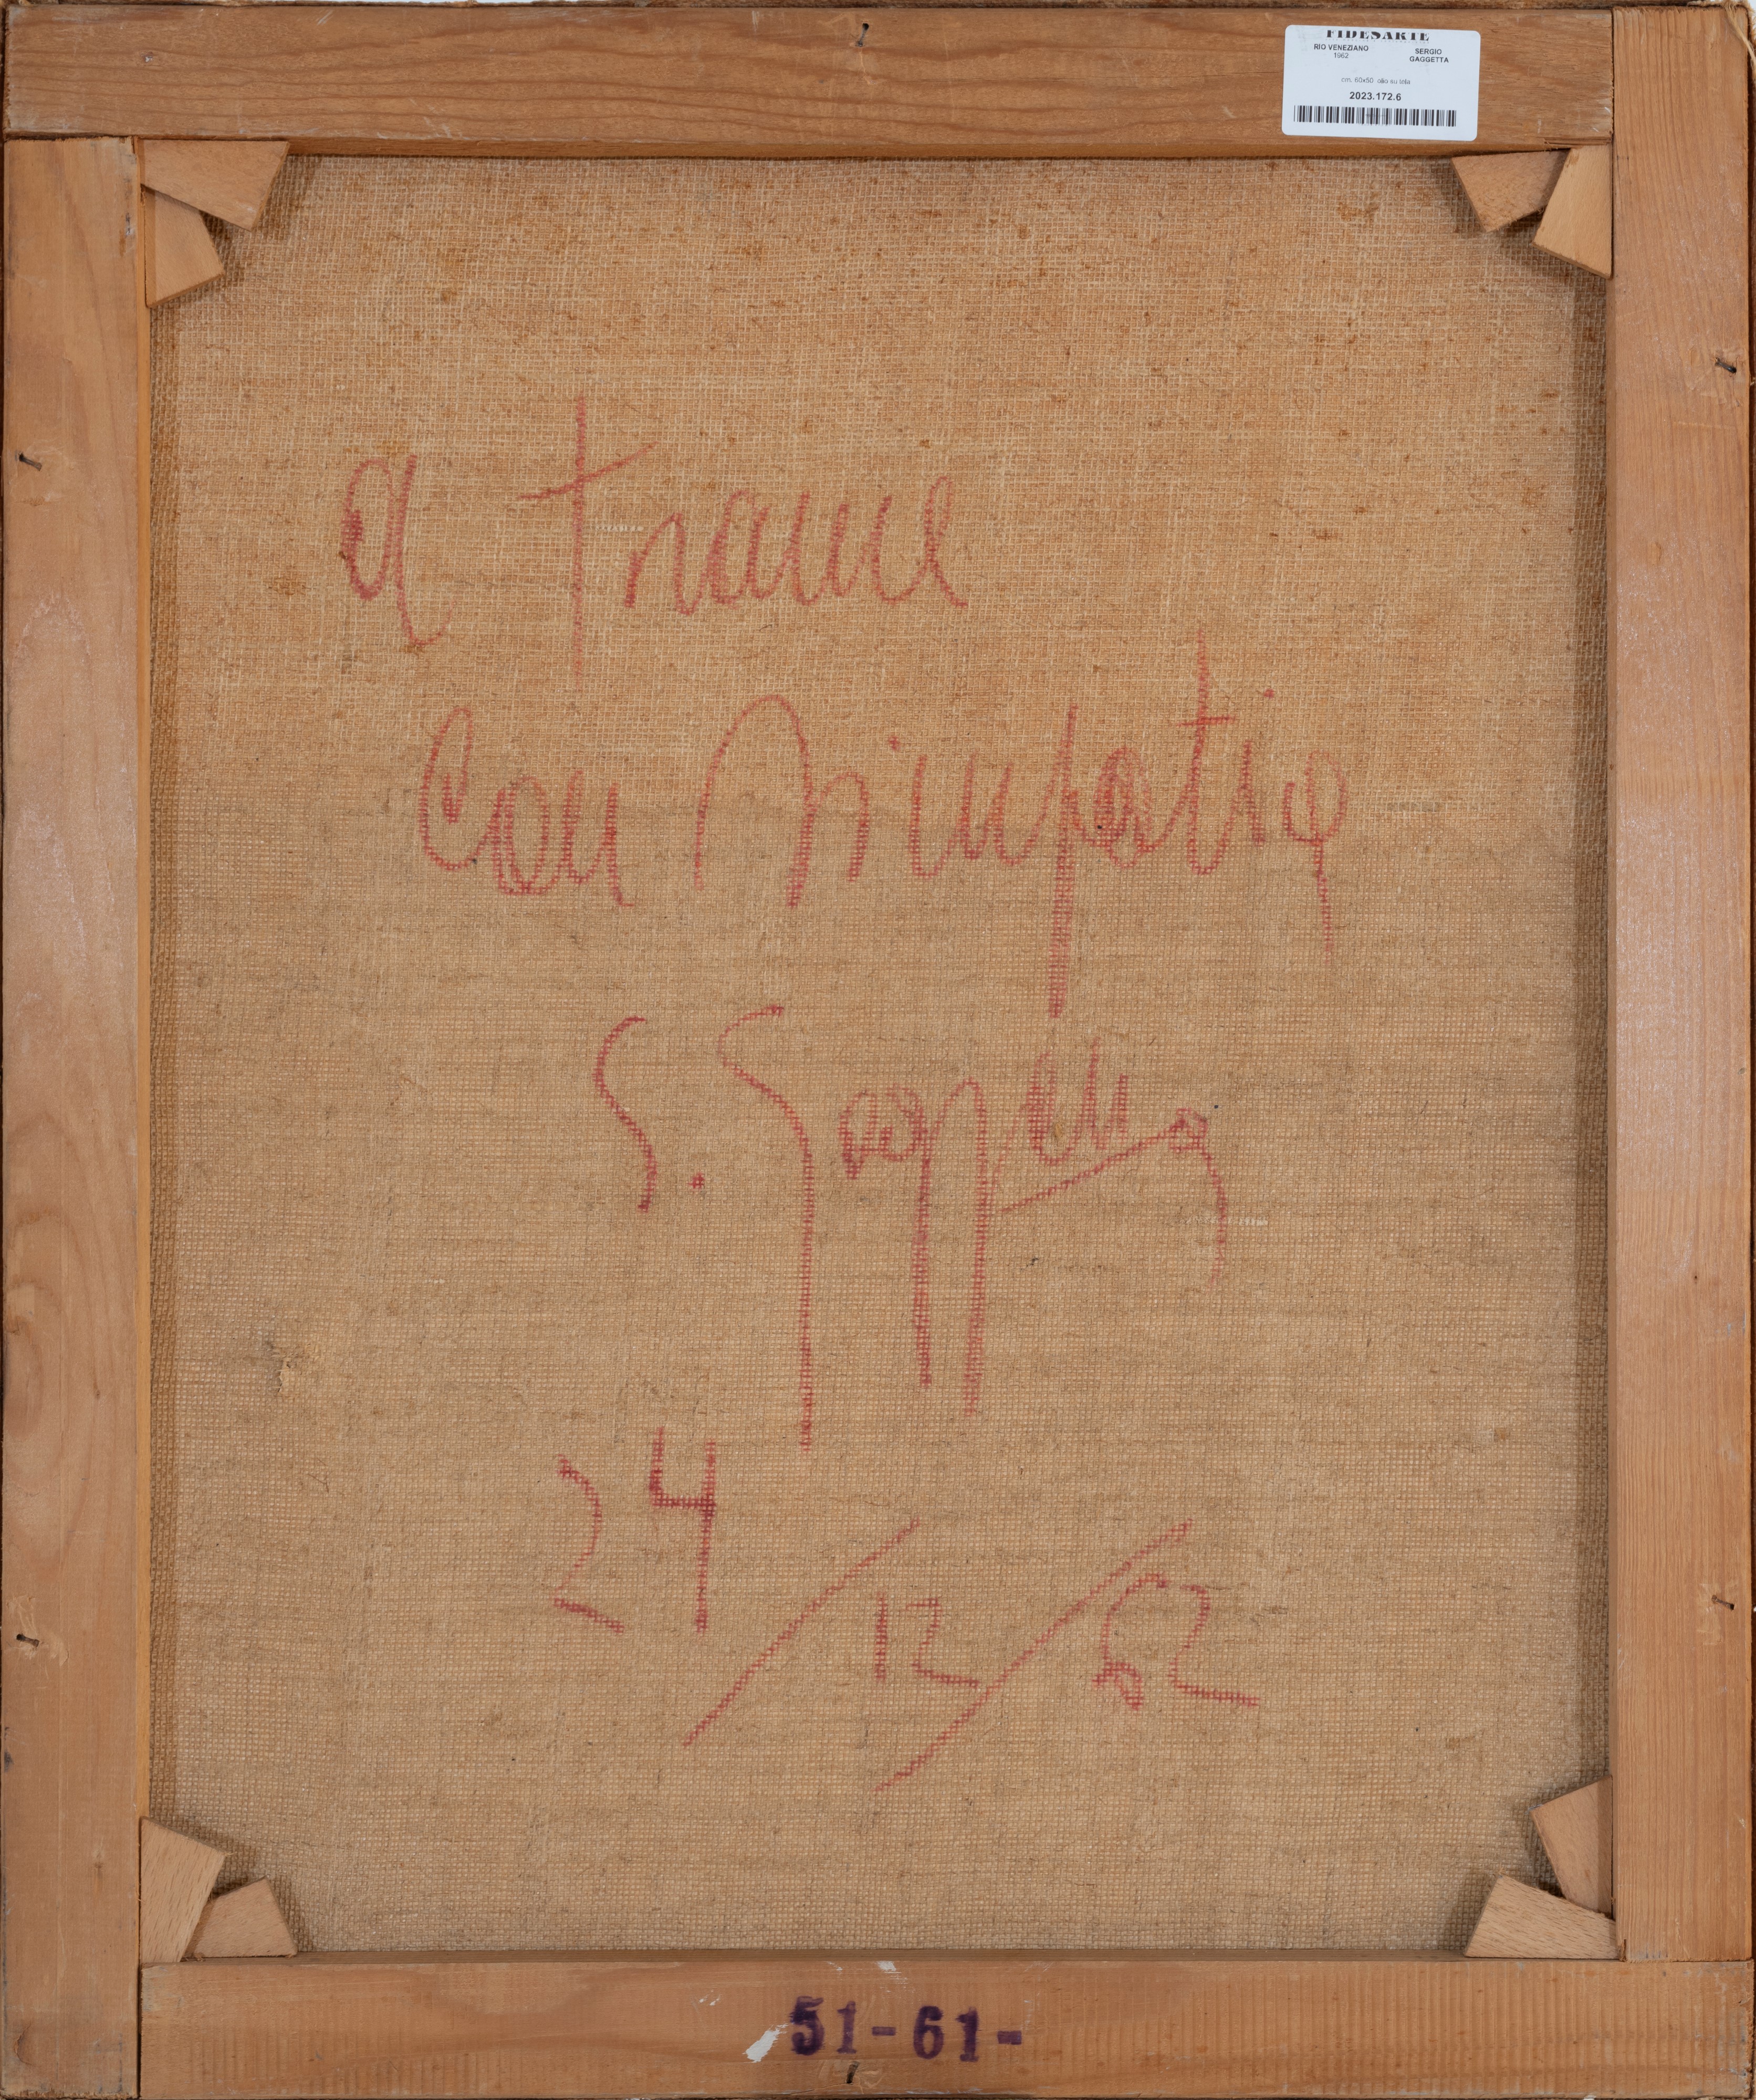 FIDESARTE
RIO VENEZIANO
1962
SERGIO
GAGGETTA
cm. 60x50 olio su tela
2023.172.6
a
con simpatia
S.
24/12/62
51-61-